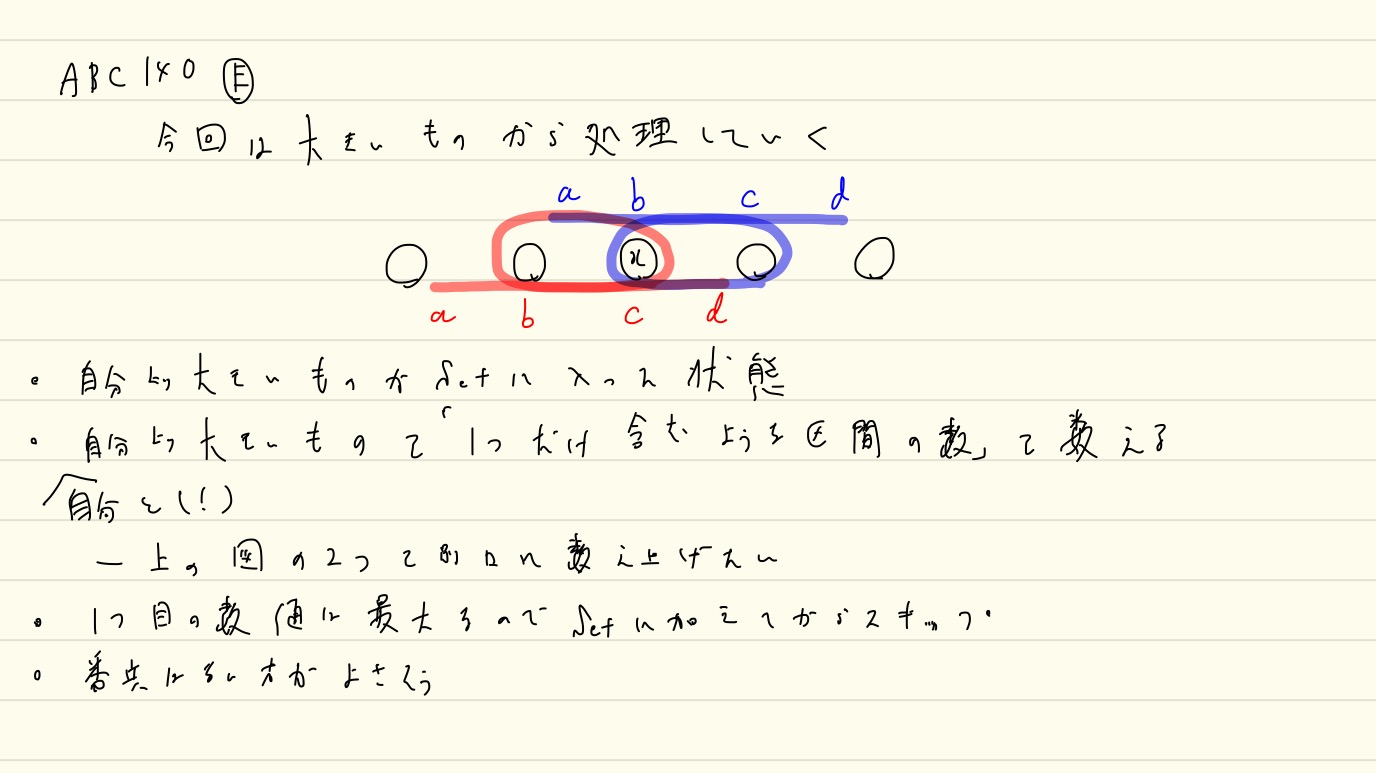 ABC 140 E
今回は大きいものから処理していく
a b c d
x
a b c d
・自分より大きいものが Set に入った状態
・自分より大きいものを「1つだけ含むような区間の数」を数える
自分と(!)
― 上の図の2つを別口に数え上げたい
・1つ目の数値は最大なので Set に加えてからスキップ
・番兵はない方がよさそう